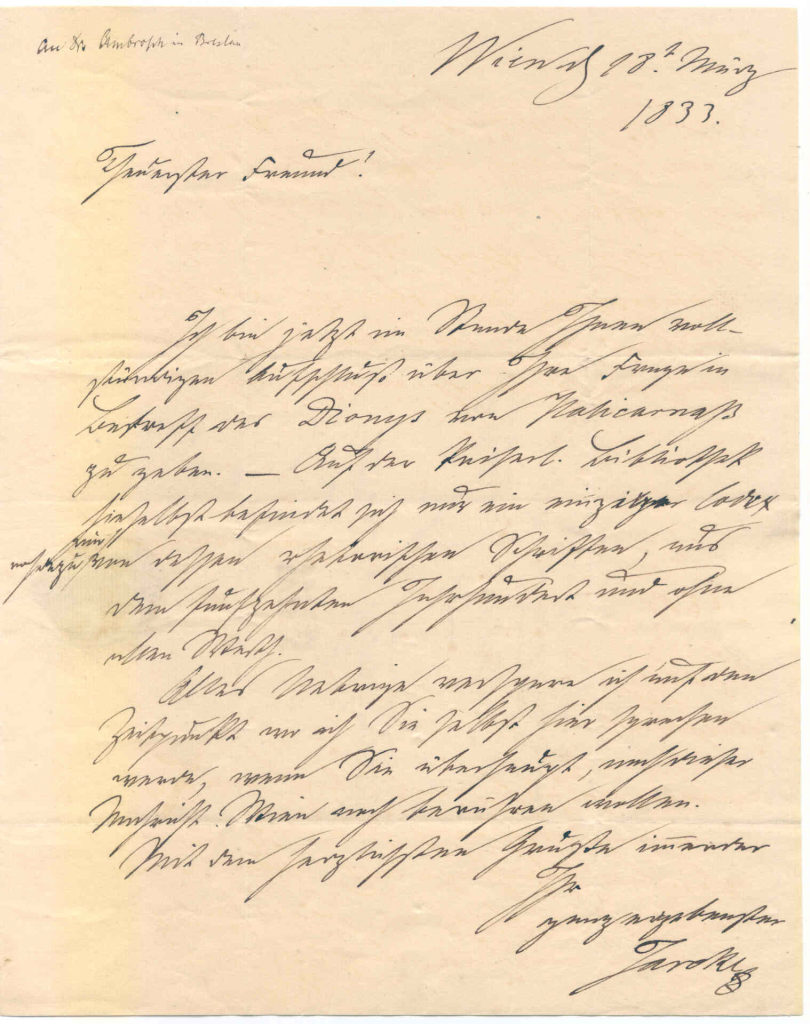 An Dr. Ambrosch in Breslau
Wien d 18t März
1833.
Theuerster Freund!
Ich bin jetzt im Stande Ihnen voll-
ständigen Aufschluß über Ihre Frage in
Betreff des Dionys von Halicarnaß
zu geben. — Auf der Kaiserl. Bibliothek
hieselbst befindet sich nur ein einziger Codex
von dessen rhetorischen Schriften, aus
noch dazu nur
dem funfzehnten Jahrhundert und ohne
allen Werth.
Alles Uebrige verspare ich auf den
Zeitpunkt wo ich Sie selbst hier sprechen
werde, wenn Sie überhaupt, nach dieser
Nachricht Wien noch berühren wollen.
Mit dem herzlichsten Gruße immerdar
Ihr
ganz ergebenster
Jarcke